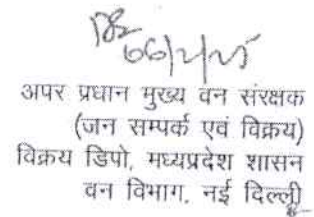 अपर प्रधान मुख्य वन संरक्षक
(जन सम्पर्क एवं विक्रय)
विक्रय डिपो, मध्यप्रदेश शासन
वन विभाग, नई दिल्ली